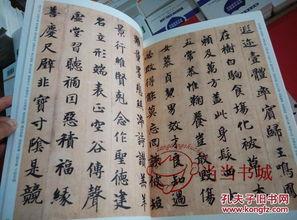 遐迩壹體率賓歸王鳴鳳
在樹白駒食場化被草木
賴及萬方蓋此身髮四大
五常恭惟鞠養豈敢毀傷
女慕貞男效才良知過
必改得能莫忘
詩讚羔羊
景行維賢剋念作聖德建
名立形端表正空谷傳聲
虛堂習聽禍因惡積福緣
善慶尺璧非寶寸陰是競